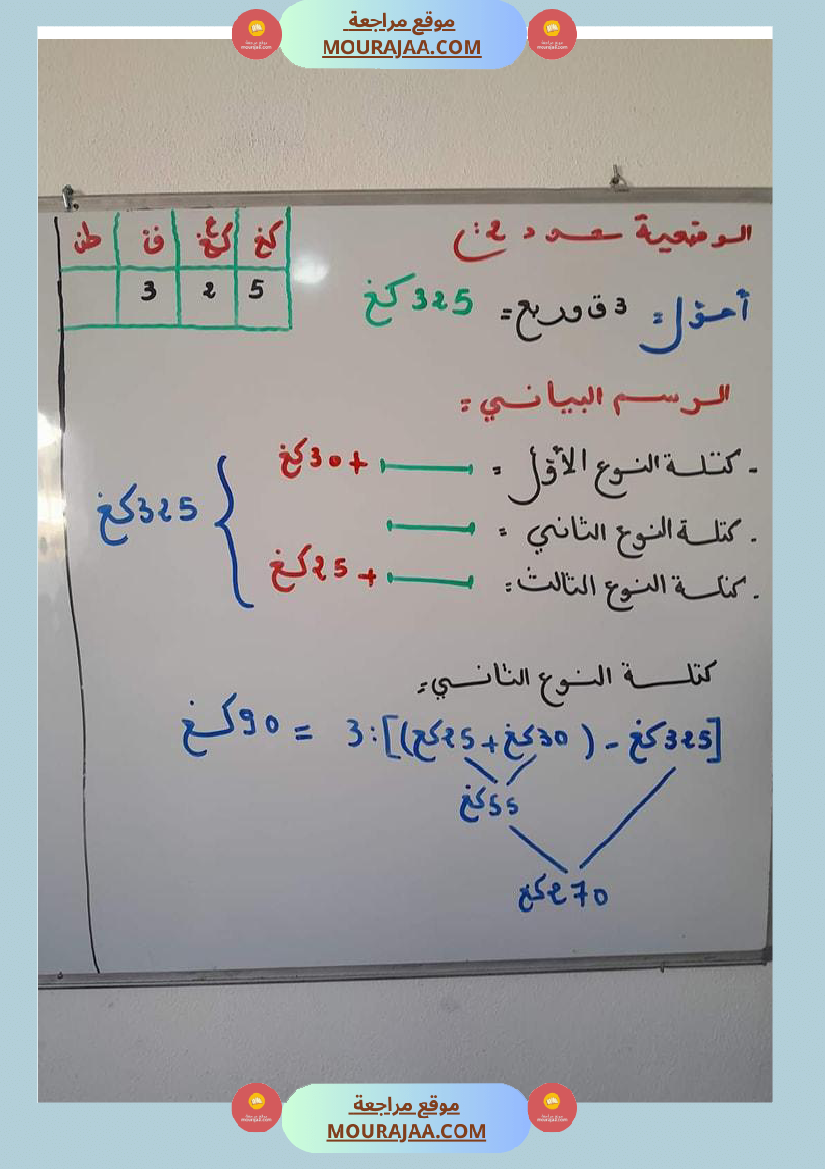 موقع مراجعة
MOURAJAA.COM
الوضعية عدد 2:
طن ق عكغ كغ
3 2 5
أحوّل: 3ق وربع = 325كغ
الرسم البياني:
- كتلة النوع الأوّل: +30كغ
- كتلة النوع الثاني:
- كتلة النوع الثالث: +25كغ
325كغ
كتلة النوع الثاني:
[325كغ - (30كغ + 25كغ)] : 3 = 90كغ
55كغ
270كغ
موقع مراجعة
MOURAJAA.COM